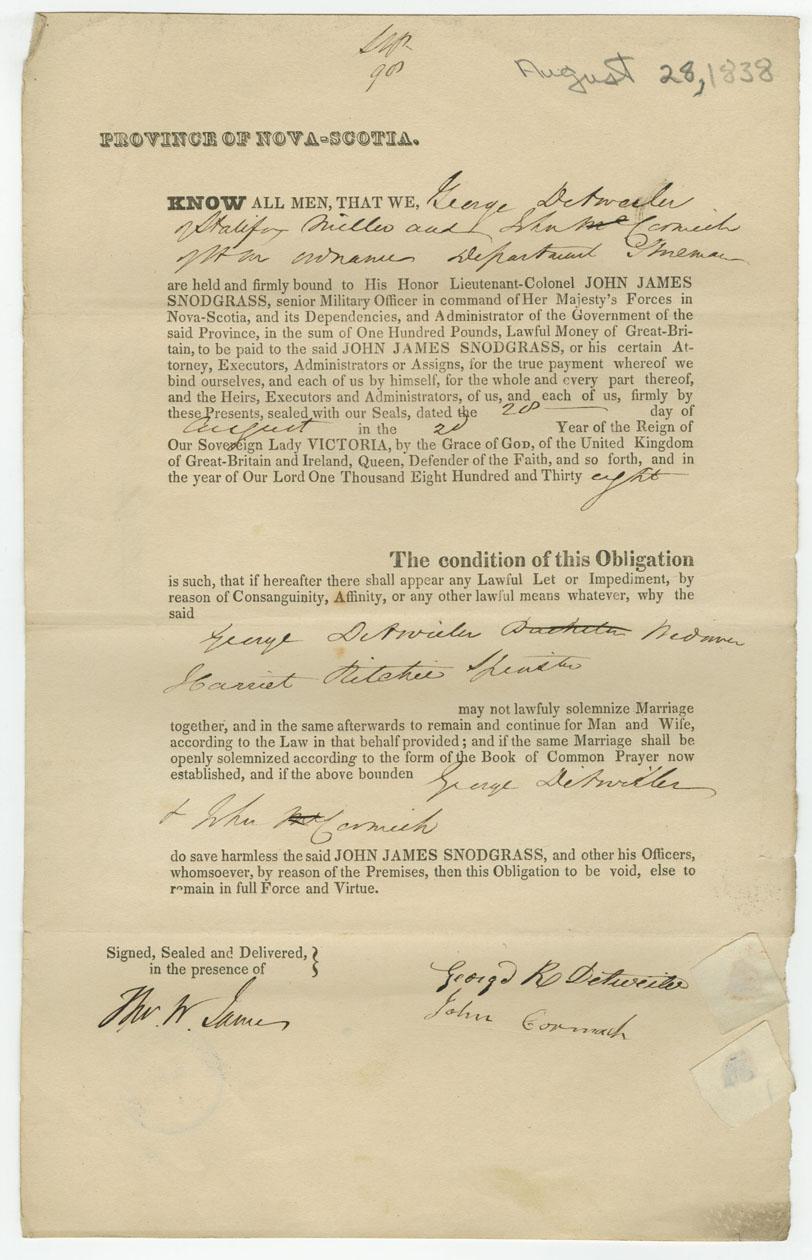 98
August 28, 1838
PROVINCE OF NOVA-SCOTIA.
KNOW ALL MEN, THAT WE, George Detweiler
of Halifax Miller and John Mc Cormick
of H M ordnance Department
are held and firmly bound to His Honor Lieutenant-Colonel JOHN JAMES
SNODGRASS, senior Military Officer in command of Her Majesty's Forces in
Nova-Scotia, and its Dependencies, and Administrator of the Government of the
said Province, in the sum of One Hundred Pounds, Lawful Money of Great-Bri-
tain, to be paid to the said JOHN JAMES SNODGRASS, or his certain At-
torney, Executors, Administrators or Assigns, for the true payment whereof we
bind ourselves, and each of us by himself, for the whole and every part thereof,
and the Heirs, Executors and Administrators, of us, and each of us, firmly by
these Presents, sealed with our Seals, dated the 28 day of
August in the 2d Year of the Reign of
Our Sovereign Lady VICTORIA, by the Grace of GOD, of the United Kingdom
of Great-Britain and Ireland, Queen, Defender of the Faith, and so forth, and in
the year of Our Lord One Thousand Eight Hundred and Thirty eight
The condition of this Obligation
is such, that if hereafter there shall appear any Lawful Let or Impediment, by
reason of Consanguinity, Affinity, or any other lawful means whatever, why the
said
George Detwieler Bachelor Widower
Harriet Ritchie Spinster
may not lawfuly solemnize Marriage
together, and in the same afterwards to remain and continue for Man and Wife,
according to the Law in that behalf provided; and if the same Marriage shall be
openly solemnized according to the form of the Book of Common Prayer now
established, and if the above bounden George Detwieler
& John Mc Cormick
do save harmless the said JOHN JAMES SNODGRASS, and other his Officers,
whomsoever, by reason of the Premises, then this Obligation to be void, else to
remain in full Force and Virtue.
Signed, Sealed and Delivered,
in the presence of
George R Detweiler
Thos. W. James
John Cormack